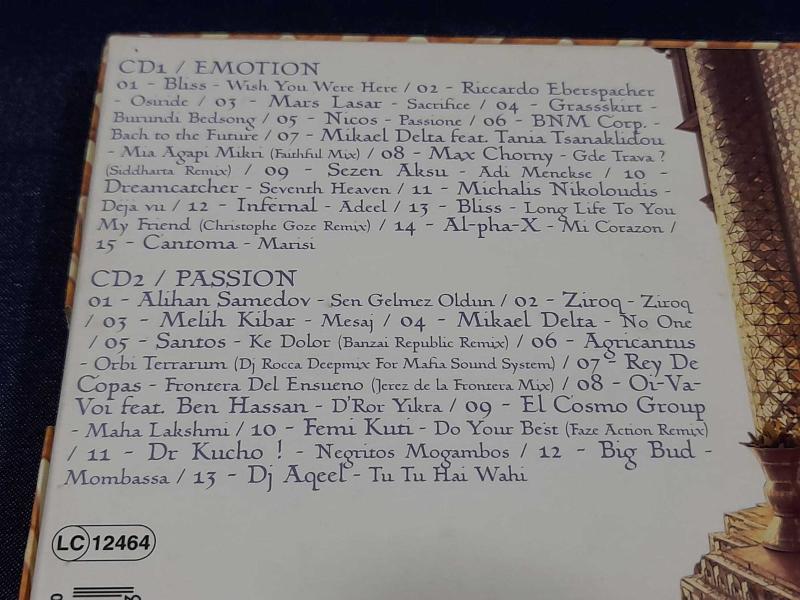 CD1 / EMOTION
01 - Bliss - Wish You Were Here / 02 - Riccardo Eberspacher
- Osunde / 03 - Mars Lasar - Sacrifice / 04 - Grassskirt -
Burundi Bedsong / 05 - Nicos - Passione / 06 - BNM Corp. -
Bach to the Future / 07 - Mikael Delta feat. Tania Tsanaklidou
- Mia Agapi Mikri (Faithful Mix) / 08 - Max Chorny - Gde Trava ?
(Siddharta Remix) / 09 - Sezen Aksu - Adi Menekse / 10 -
Dreamcatcher - Seventh Heaven / 11 - Michalis Nikoloudis -
Deja vu / 12 - Infernal - Adeel / 13 - Bliss - Long Life To You
My Friend (Christophe Goze Remix) / 14 - Al-pha-X - Mi Corazon /
15 - Cantoma - Marisi
CD2 / PASSION
01 - Alihan Samedov - Sen Gelmez Oldun / 02 - Ziroq - Ziroq
/ 03 - Melih Kibar - Mesaj / 04 - Mikael Delta - No One
/ 05 - Santos - Ke Dolor (Banzai Republic Remix) / 06 - Agricantus
- Orbi Terrarum (Dj Rocca Deepmix For Mafia Sound System) / 07 - Rey De
Copas - Frontera Del Ensueno (Jerez de la Frontera Mix) / 08 - Oi-Va-
Voi feat. Ben Hassan - D'Ror Yikra / 09 - El Cosmo Group
- Maha Lakshmi / 10 - Femi Kuti - Do Your Best (Faze Action Remix)
/ 11 - Dr Kucho ! - Negritos Mogambos / 12 - Big Bud -
Mombassa / 13 - Dj Aqeel - Tu Tu Hai Wahi
LC 12464